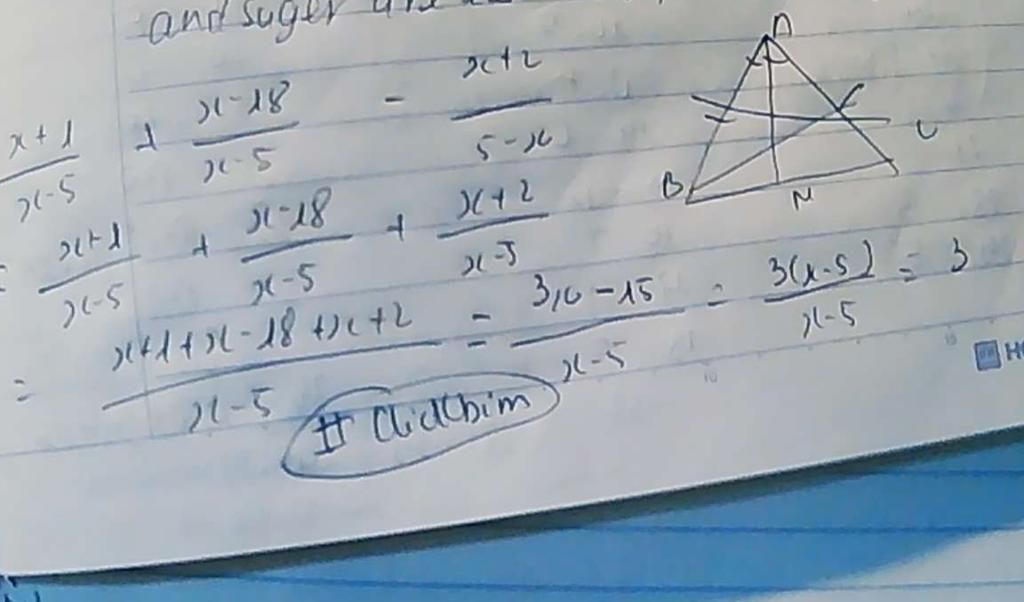 and suger
x+1/x-5 + x-18/x-5 - x+2/5-x
= x+1/x-5 + x-18/x-5 + x+2/x-5
= x+1+x-18+x+2/x-5 = 3x-15/x-5 = 3(x-5)/x-5 = 3
A
B
N
C
10
H